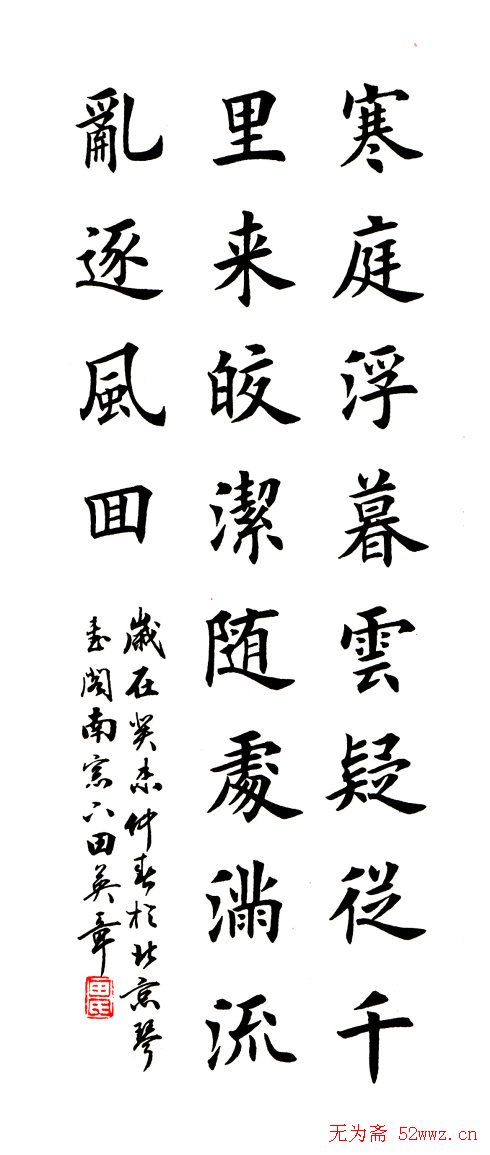 寒庭浮暮雲疑從千
里来皎潔随處滿流
亂逐風囬
歲在癸未仲春於北京琴
書閣南窓下田英章
田氏
无为斋 52wwz.cn